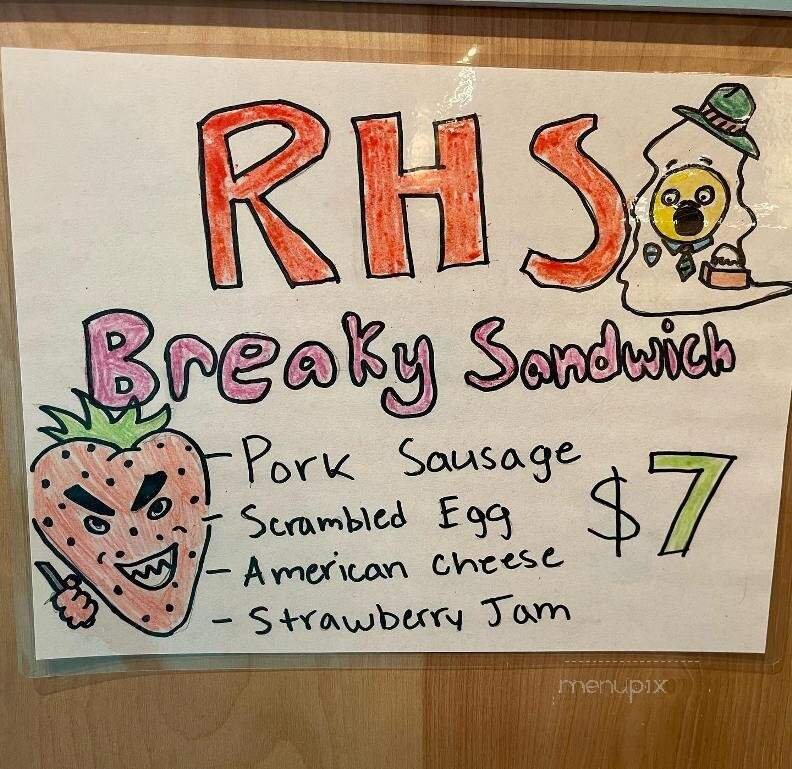 RHS
Breaky Sandwich
- Pork Sausage
- Scrambled Egg
- American cheese
- Strawberry Jam
$7
menupix